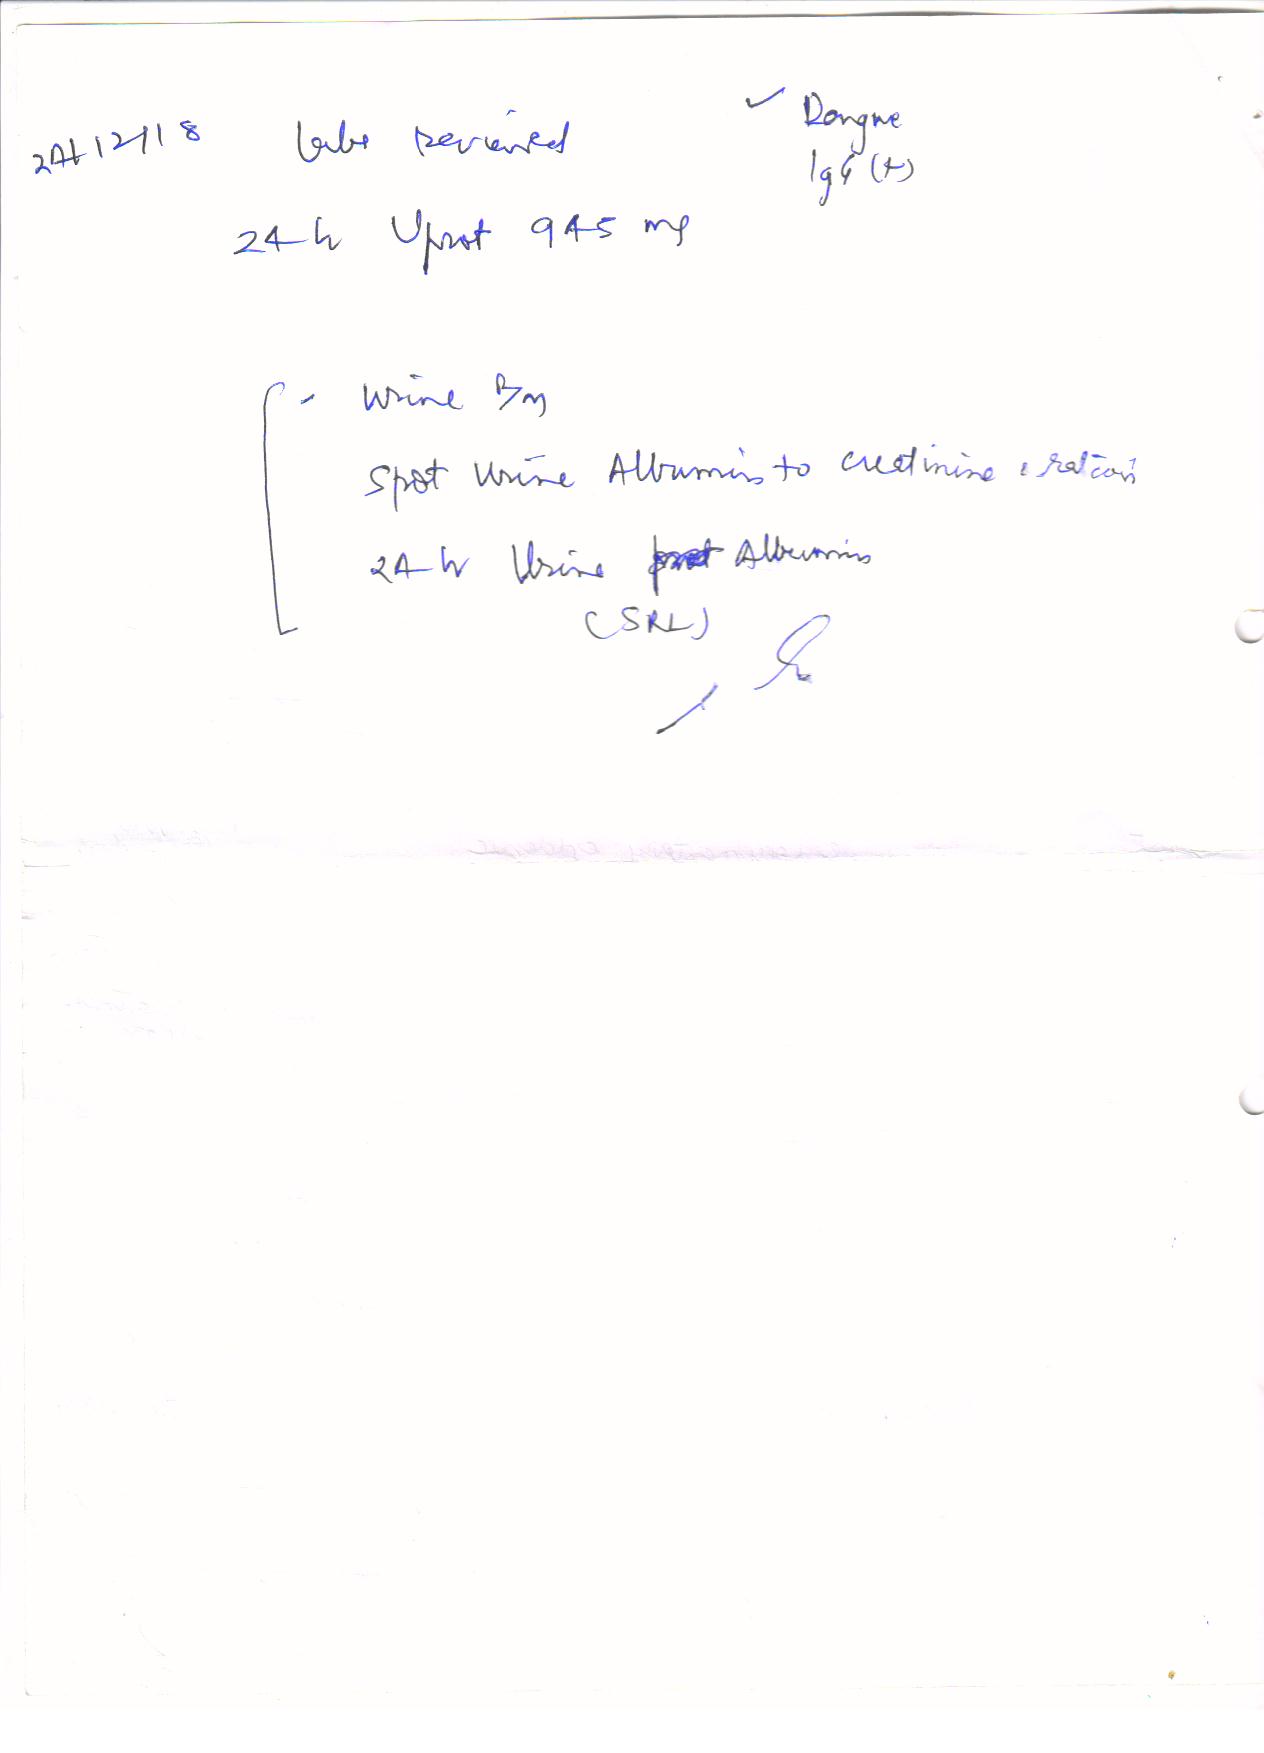 24/12/18 Labs reviewed
✓ Dengue
IgG (+)
24 h Uprot 945 mg
- Urine R/M
Spot Urine Albumin to creatinine ratio
24 h Urine Albumin
(SRL)